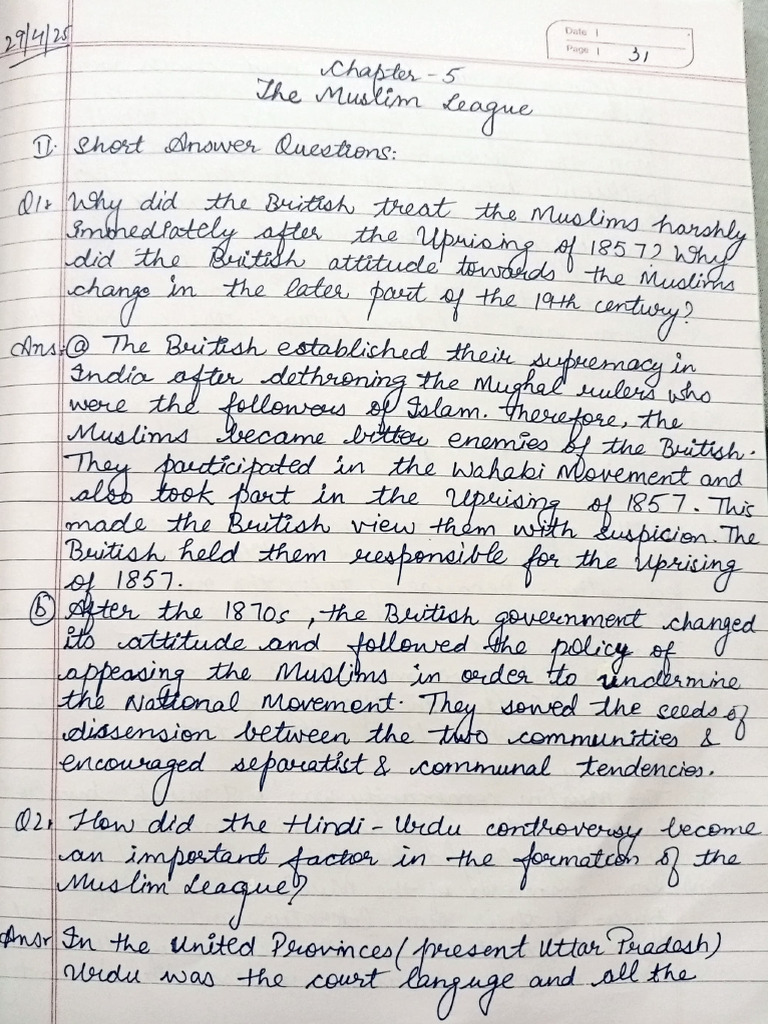 29/4/25
Date
Page 31
Chapter - 5
The Muslim League
II. Short Answer Questions:
Q1. Why did the British treat the Muslims harshly
immediately after the Uprising of 1857? Why
did the British attitude towards the Muslims
change in the later part of the 19th century?
Ans. (a) The British established their supremacy in
India after dethroning the Mughal rulers who
were the followers of Islam. Therefore, the
Muslims became bitter enemies of the British.
They participated in the Wahabi Movement and
also took part in the Uprising of 1857. This
made the British view them with suspicion. The
British held them responsible for the Uprising
of 1857.
(b) After the 1870s, the British government changed
its attitude and followed the policy of
appeasing the Muslims in order to undermine
the National Movement. They sowed the seeds of
dissension between the two communities &
encouraged separatist & communal tendencies.
Q2. How did the Hindi-Urdu controversy become
an important factor in the formation of the
Muslim League?
Ans. In the United Provinces (present Uttar Pradesh)
Urdu was the court languge and all the